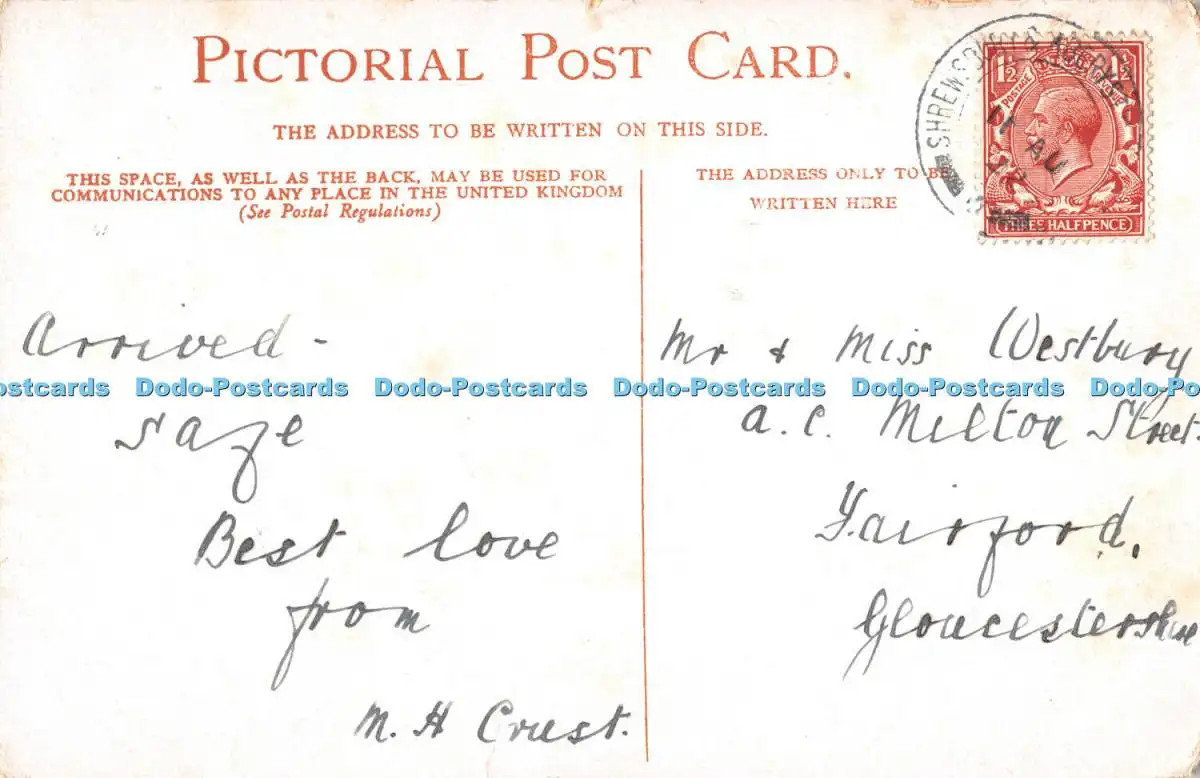 PICTORIAL POST CARD.
THE ADDRESS TO BE WRITTEN ON THIS SIDE.
THIS SPACE, AS WELL AS THE BACK, MAY BE USED FOR
COMMUNICATIONS TO ANY PLACE IN THE UNITED KINGDOM
(See Postal Regulations)
Arrived -
safe
Best love
from
M. H Crust.
THE ADDRESS ONLY TO BE
WRITTEN HERE
SHREWSBURY
11 AU
1½ 1½
POSTAGE
THREE HALFPENCE
Mr & Miss Westbury
a.c. Milton Street.
Fairford,
Gloucestershire
ostcards Dodo-Postcards Dodo-Postcards Dodo-Postcards Dodo-Postcards Dodo-Po